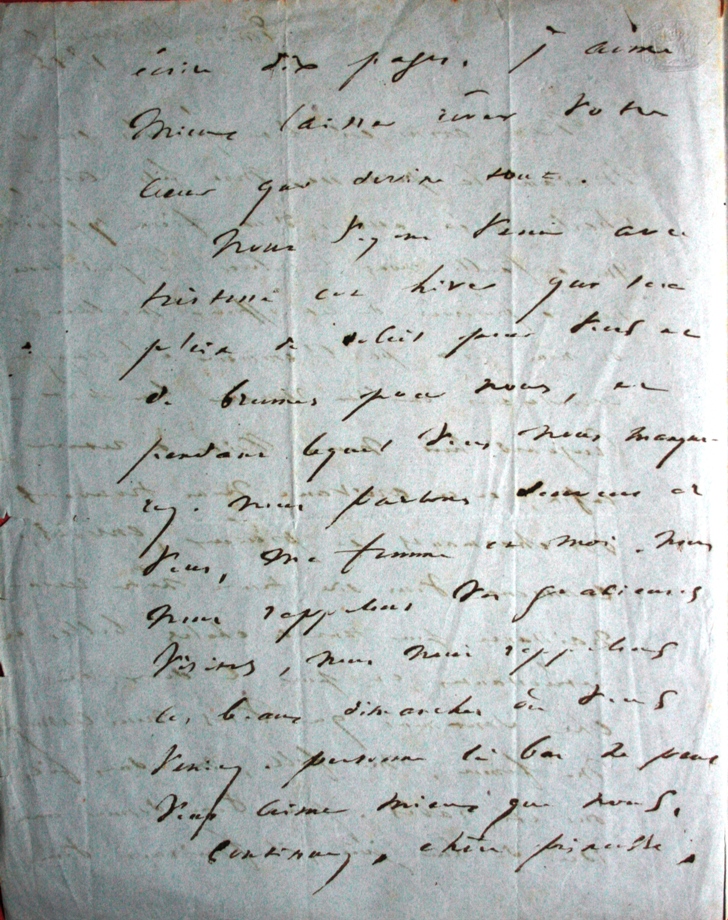 écrire dix pages. j'aime
mieux laisser rêver votre
cœur qui devine tout.
Nous voyons venir avec
tristesse cet hiver qui sera
plein de soleil pour vous et
de brumes pour nous, et
pendant lequel vous nous manque-
rez. nous parlons souvent de
vous, ma femme et moi. nous
nous rappelons vos gracieuses
visites, nous nous rappelons
les beaux dimanches où vous
veniez. personne là bas ne peut
vous aimer mieux que nous.
Continuez, chère princesse,